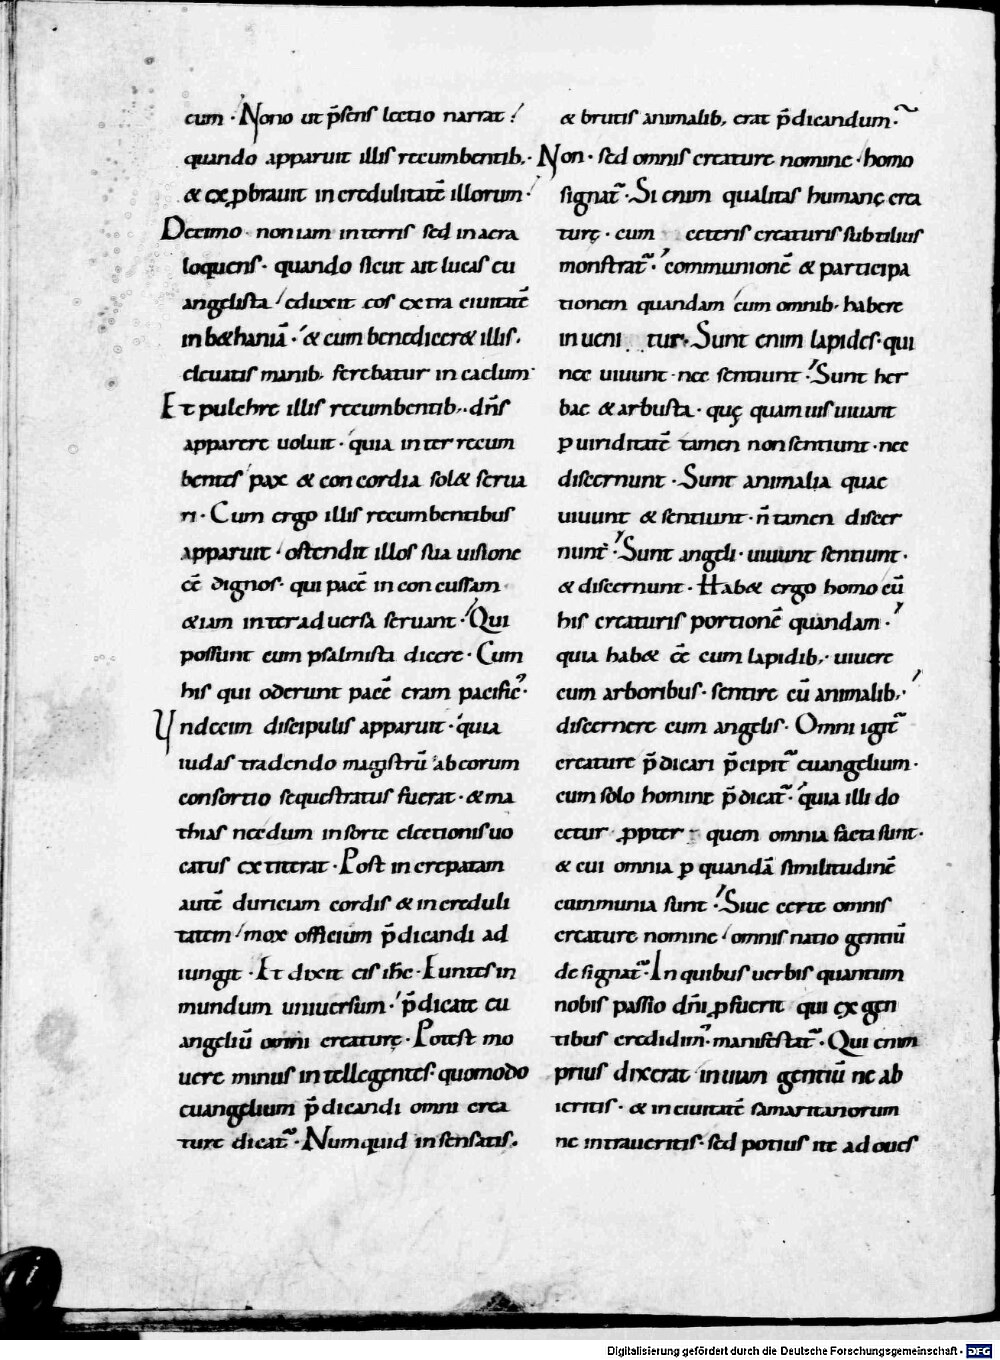 cum · Nono ut p̄sens lectio narrat ·
quando apparuit illis recumbentib; ·
& exp̱brauit in credulitatē illorum ·
Decimo · non iam in terris sed in aera
loquens · quando sicut ait lucas eu
angelista · eduxit eos extra ciuitatē
in b&haniā · & cum benedicer& illis ·
eleuatis manib; ferebatur in caelum ·
Et pulchre illis recumbentib; · dn̄s
apparere uoluit · quia inter recum
bentes pax & concordia sol& serua
ri · Cum ergo illis recumbentibus
apparuit · ostendit illos sua uisione
eē dignos · qui pacē in concussam
&iam inter aduersa seruant · Qui
possunt cum psalmista dicere · Cum
his qui oderunt pacē eram pacific᾽ ·
Undecim discipulis apparuit · quia
iudas tradendo magistrū ab eorum
consortio sequestratus fuerat · & ma
thias necdum in sorte electionis uo
catus extiterat · Post increpatam
autē duriciam cordis & increduli
tatem · mox officium p̄dicandi ad
iungit · Et dixit eis ihc̄ · Euntes in
mundum uniuersum · p̄dicate eu
angeliū omni creaturę · Potest mo
uere minus intellegentes · quomodo
euangelium p̄dicandi omni crea
ture dicat᷑ · Numquid insensatis ·
& brutis animalib; erat p̄dicandum ·
Non · sed omnis creature nomine · homo
signat᷑ · Si enim qualitas humanę crea
turę · cum ceteris creaturis subtilius
monstrat᷑ · communionē & participa
tionem quandam cum omnib; habere
inueni tur · Sunt enim lapides · qui
nec uiuunt · nec sentiunt · Sunt her
bae & arbusta · quę quamuis uiuant
ꝑ uiriditatē tamen non sentiunt · nec
discernunt · Sunt animalia quae
uiuunt & sentiunt · n̄ tamen discer
nunt · Sunt angeli · uiuunt sentiunt ·
& discernunt · Hab& ergo homo cū
his creaturis portionē quandam ·
quia hab& eē cum lapidib; · uiuere
cum arboribus · sentire cū animalib; ·
discernere cum angelis · Omni igit᷑
creature p̄dicari p̄cipit᷑ euangelium ·
cum solo homini p̄dicat᷑ · quia illi do
cetur ꝓpter quem omnia facta sunt ·
& cui omnia ꝑ quandā similitudinē
cummunia sunt · Siue certe omnis
creature nomine · omnis natio gentiū
designat᷑ · In quibus uerbis quantum
nobis passio dn̄i ꝓfuerit qui ex gen
tibus credidim᾽ · manifestat᷑ · Qui enim
prius dixerat in uiam gentiū ne ab
ieritis · & in ciuitatē samaritanorum
ne intraueritis · sed potius ite ad oues
Digitalisierung gefördert durch die Deutsche Forschungsgemeinschaft - DFG